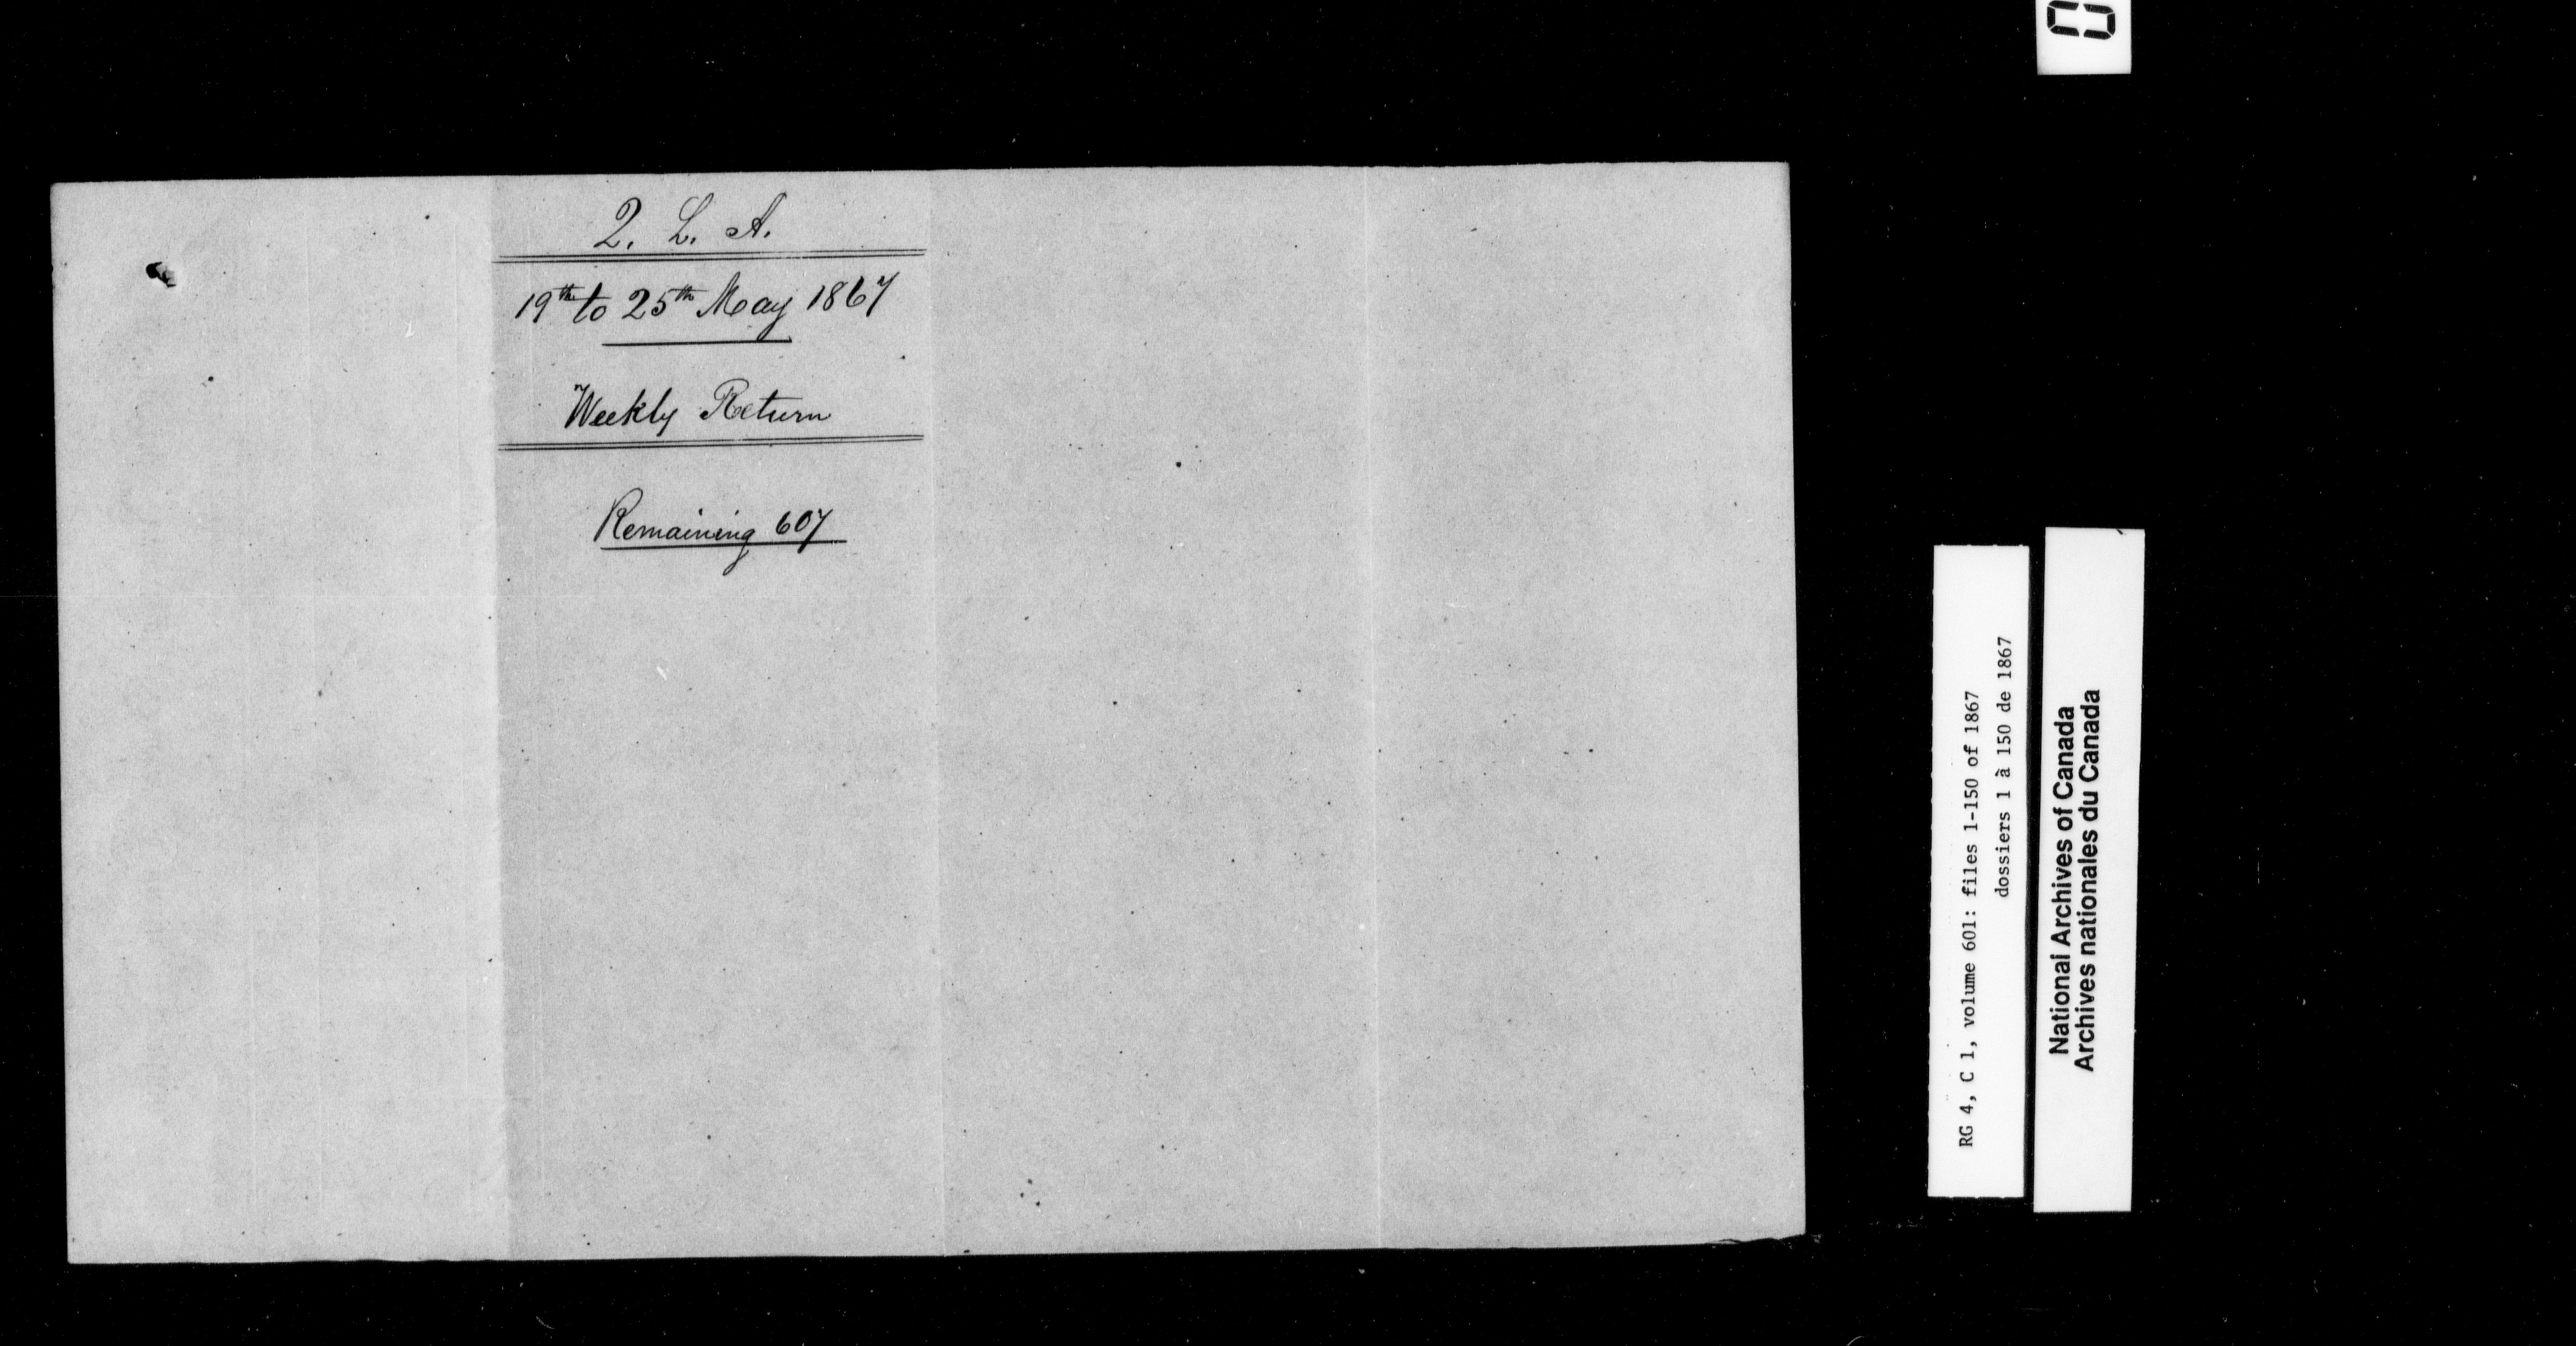 Q. L. A.
19th to 25th May 1867
Weekly Return
Remaining 607
RG 4, C 1, volume 601: files 1-150 of 1867
dossiers 1 à 150 de 1867
National Archives of Canada
Archives nationales du Canada